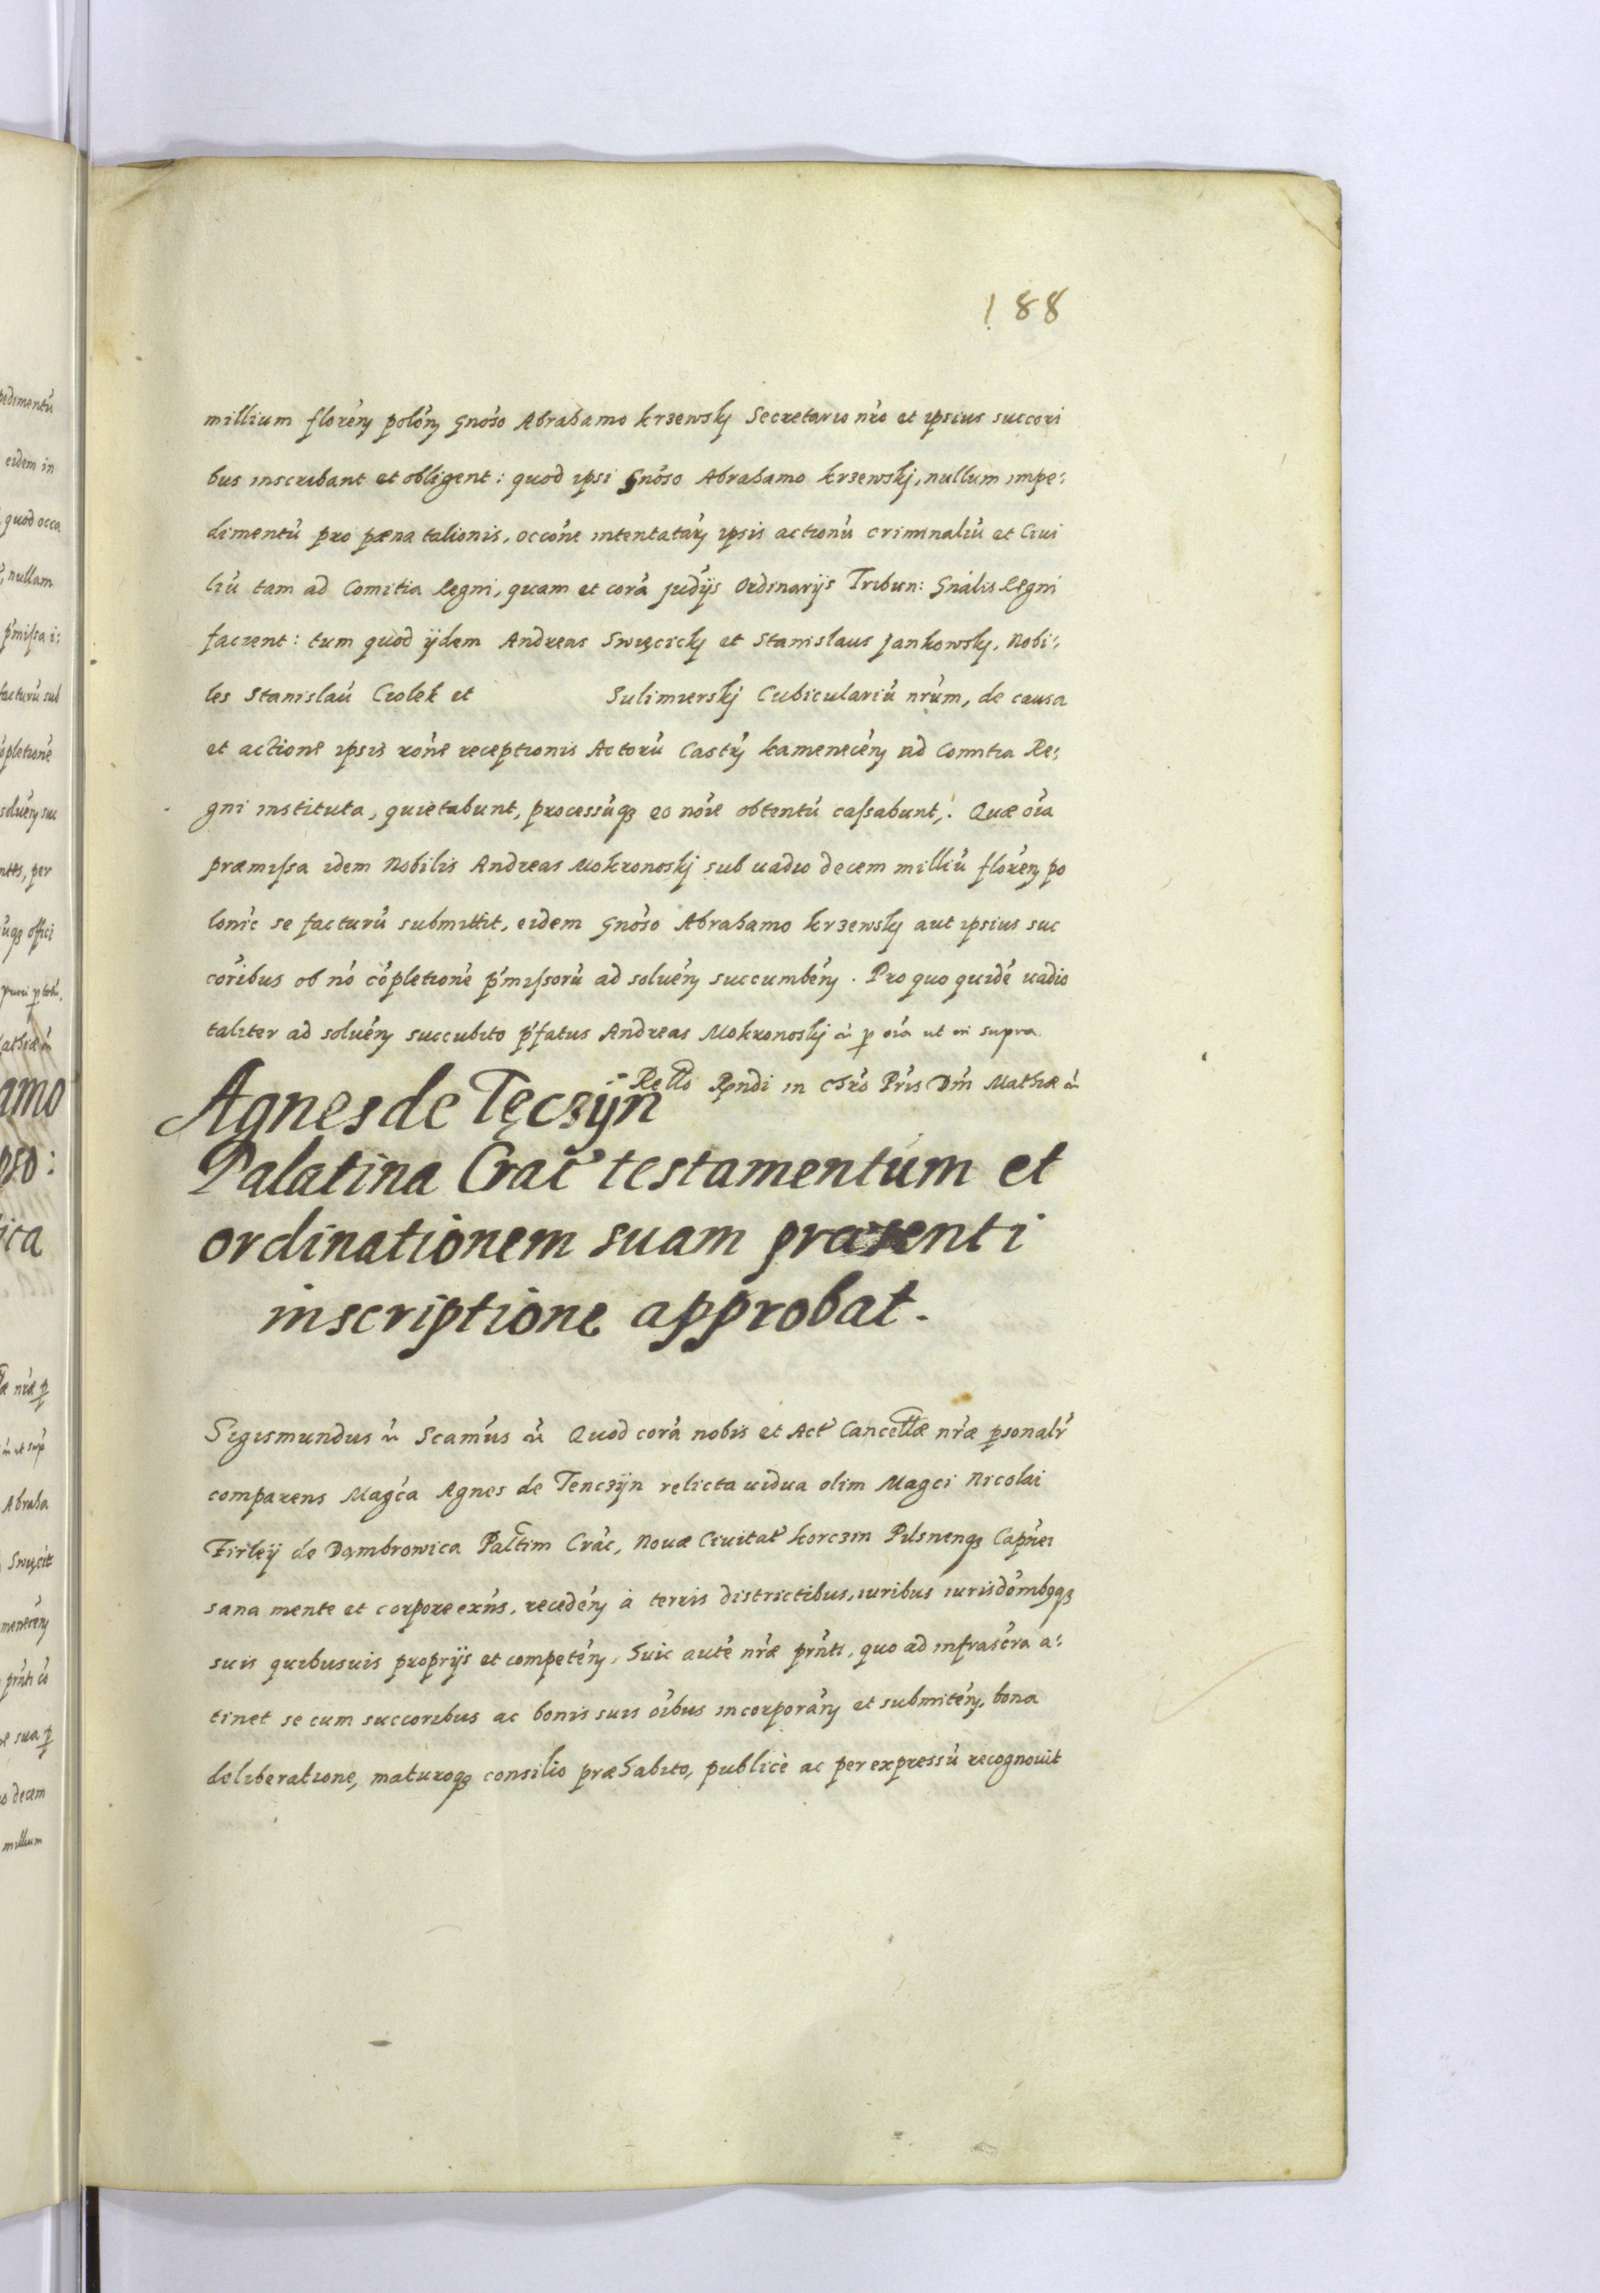 188
millium floreñ poloñ Gnoso Abrahamo Krzewskj Secretario nro et ipsius succori
bus inscribant et obligent: quod ipsi Gnoso Abrahamo Krzewskj, nullum impe:
dimentũ pro pæna talionis, occõne intentatarũ ipsis actionũ criminaliũ et Ciui
liũ tam ad Comitia Regni, quam et corã Judÿs Ordinarijs Tribun: Gnãlis Regni
facient: tum quod ijdem Andreas Swięcickj et Stanislaus Jankowskj, Nobi:
les Stanislaũ Ciolek et Sulimierskj Cubiculariũ nrũm, de causa
et actione ipsis rõne receptionis Actorũ Castrj Kameneceñ ad Comitia Re:
gni instituta, quietabunt, processũq3 eo nõie obtentũ cassabunt,. Quæ oĩa
præmissa idem Nobilis Andreas Mokronoskj sub uadio decem milliũ floreñ po
loniĉ se facturũ submittit, eidem Gnoso Abrahamo Krzewskj aut ipsius suc
coribus ob nõ cõpletionẽ p̃missorũ ad solueñ succumbeñ. Pro quo quidẽ uadio
taliter ad solueñ succubito p̃fatus Andreas Mokronoskj ñ p oĩa ut in supra
Rello Rṽndi in Chro Pris Dñi Mathiæ ñ
Agnes de Tęczÿn
Palatina Crac̃ testamentum et
ordinationem suam præsenti
inscriptione approbat.
Sigismundus ñ Scam̃us ñ Quod corã nobis et Act̃ Cancellæ nr̃æ p̃sonalr̃
comparens Mag̃ca Agnes de Tenczÿn relicta uidua olim Magci Nicolai
Firleÿ de Dąmbrowica Paltini Crac̃, Nouæ Ciuitat̃ Korczin Pilsnenq3 Capñei
sana mente et corpore exñs, recedeñ à terris districtibus, iuribus iurisdõmbq3
suis quibusuis proprijs et competeñ, huic autẽ nr̃æ pr̃nti, quo ad infrascr̃a a:
tinet se cum succoribus ac bonis suis oĩbus incorporañ et submiteñ, bona
deliberatione, maturoq3 consilio præhabito, publicè ac per expressũ recognouit